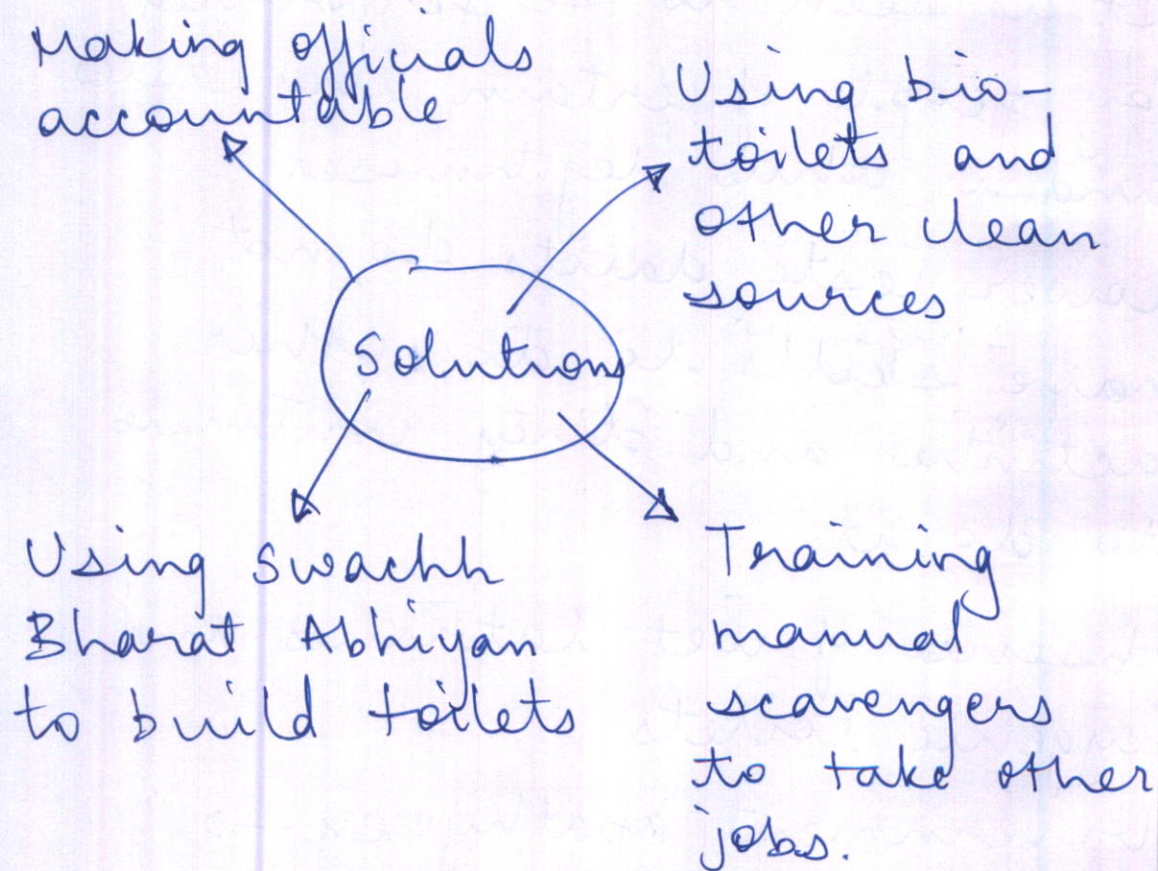 Making officials
accountable
Using bio-
toilets and
other clean
sources
Solutions
Using Swachh
Bharat Abhiyan
to build toilets
Training
manual
scavengers
to take other
jobs.